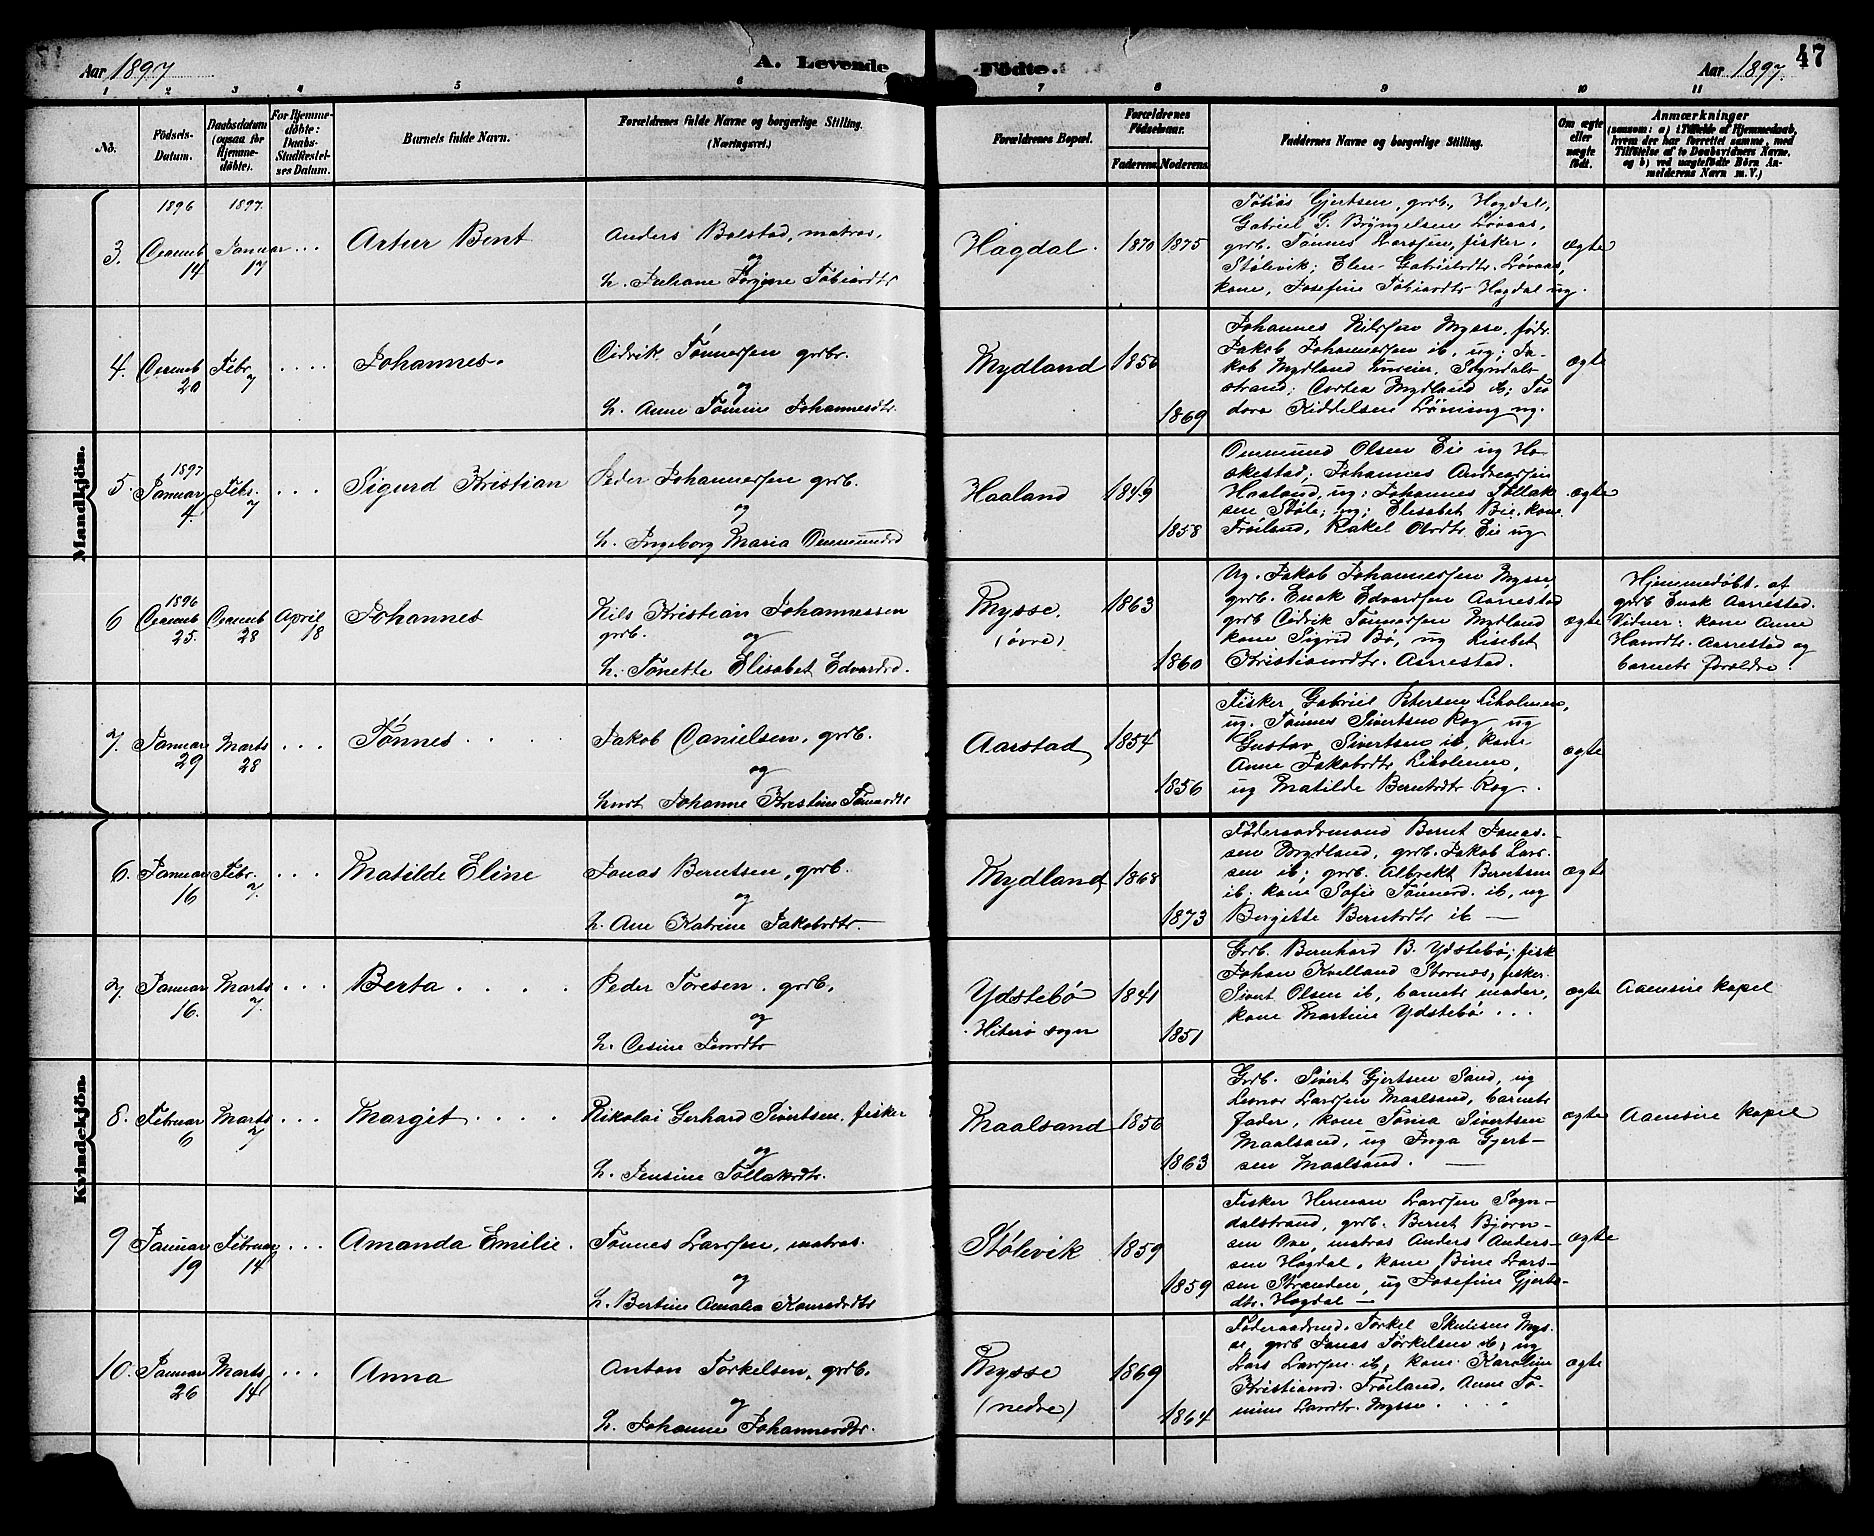 Aar 1897
A. Levende Födte.
Aar 1897.
47
1 2 3 4 5 6 7 8 9 10 11
No.
Födsels-
Datum.
Daabsdatum
(ogsaa for
Hjemme-
döbte).
For Hjemme-
döbte:
Daabs-
Stadfæstel-
ses Datum.
Barnets fulde Navn.
Forældrenes fulde Navne og borgerlige Stilling.
(Næringsvei.)
Forældrenes Bopæl.
Forældrenes
Födselsaar.
Faderens. Moderens.
Faddernes Navne og borgerlige Stilling.
Om ægte
eller
uægte
födt.
Anmærkninger
(saasom: a) i Tilfælde af Hjemmedaab,
hvem der har forrettet samme, med
Tilföielse af to Daabsvidners Navne,
og b) ved uægtefödte Börn An-
melderens Navn m. V.)
Mandkjön.
3.
1896
Decemb
14
1897.
Januar
17
Artur Bent
Anders Bolstad, matros,
og
h. Juliane Jørgine Tobiasdtr
Hagdal.
1870 1875
Tobias Gjertsen, grdb., Hogdal,
Gabriel G. Bryngelsen Løvaas,
grdb. Tønnes Larssen, fisker,
Stølevik; Elen Gabrielsdtr. Løvaas,
kone, Josefine Tobiasdtr Hogdal ug.
ægte
4.
Decemb
20
Febr.
7
Johannes.
Didrik Tønnessen grdbr.
og
h. Anne Tomine Johannesdtr.
Mydland
1856
1869
Johannes Nilssen Mysse, føder.
Jakob Johannessen ib, ug; Ja-
kob Mydland, Sogndals-
strand; Dortea Mydland ib; Teo
dora Kiddelsen Løning ug.
ægte
5
1897
Januar
4.
Febr.
7
Sigurd Kristian
Peder Johannessen grdb.
og
h. Ingeborg Maria Ommundsd
Haaland
1849
1858
Ommund Olsen Eie ug Ho
skestad; Johannes Andreassen
Haaland, ug; Johannes Tollak
sen Støle; ug; Elisabet Bie, kone
Frøiland, Rakel Olsdtr Eie ug
ægte
6
1896
Decemb
25.
Decemb
28
April
18
Johannes
Nils Kristian Johannessen
grdb.
og
h. Tonette Elisabet Edvardsd.
Mysse.
(øvre)
1863
1860
Ug. Jakob Johannessen Mysse
grdb. Enok Edvardsen Aarrestad
grdb Didrik Tønnessen Mydland
kone Sigrid Bø, ug Lisebet
Kristiansdtr. Aarrestad.
ægte
Hjemmedøbt af
grdb Enok Aarrestad.
Vidner: kone Anne
Hansdtr. Aarrestad og
barnets forældre.
7.
Januar
29
Marts
28
Tønnes
Jakob Danielsen, grdb.
og
hust Johanne Kristine Tønnesdtr
Aarstad
1854
1856
Fisker Gabriel Petersen Liholmen,
ug. Tønnes Sivertsen Rog ug
Gustav Sivertsen ib, kone
Anne Jakobsdtr Liholmen,
ug Matilde Berntsdtr Rog.
ægte
Kvindekjön.
6.
Januar
16
Febr.
7.
Matilde Eline
Jonas Berntsen, grdb.
og
h. Ane Katrine Jakobsdtr.
Mydland
1868
1873
Føderaadsmand Bernt Jonas-
sen Mydland, grdb. Jakob Lars-
sen ib; grdb. Albrekt Berntsen
ib; kone Sofie Tønnesd. ib, ug
Bergitte Berntsdtr ib
ægte
7.
Januar
16.
Marts
7.
Berta
Peder Toresen, grdb.
og
h. Desine Jensdtr
Ydstebø
Hiterø sogn
1841
1851
Grdb. Bernhard B. Ydstebø; fisk
Johan Kvelland Stornæs, fisker
Sivert Olsen ib, barnets moder,
kone Martine Ydstebø
ægte
Aaensire kapel
8.
Februar
6
Marts
7
Margit
Nikolai Gerhard Sivertsen, fisker
og
h. Jensine Tollaksdtr.
Maalsand
1856
1863
Grdb. Sivert Gjertsen Sand, ug
Leonor Larssen Maalsand, barnets
fader, kone Tonia Sivertsen
Maalsand, ug Inga Gjert-
sen Maalsand.
ægte
Aaensire kapel
9
Januar
19
Februar
14
Amanda Emilie.
Tønnes Larssen, matros.
og
h. Bertine Amalia Konradsdtr
Stølevik
1859
1859
Fisker Herman Larssen Sogn-
dalstrand, grdb. Bernt Bjørn-
sen Ove, matros Anders Anders-
sen Hogdal, kone Bine Lars-
sen Stranden, ug Josefine Gjerts-
dtr. Hogdal
ægte
10.
Januar
26
Marts
14
Anna
Anton Torkelsen, grdb.
og
h. Johanne Johannesdtr.
Mysse
(nedre)
1869
1864
Føderaadsmd. Torkel Skulesen Mys-
se, grdb Jonas Torkelsen ib, ug
Lars Larssen ib, kone Karoline
Kristiansd. Frøiland, Anne To-
mine Larsdtr. Mysse.
ægte